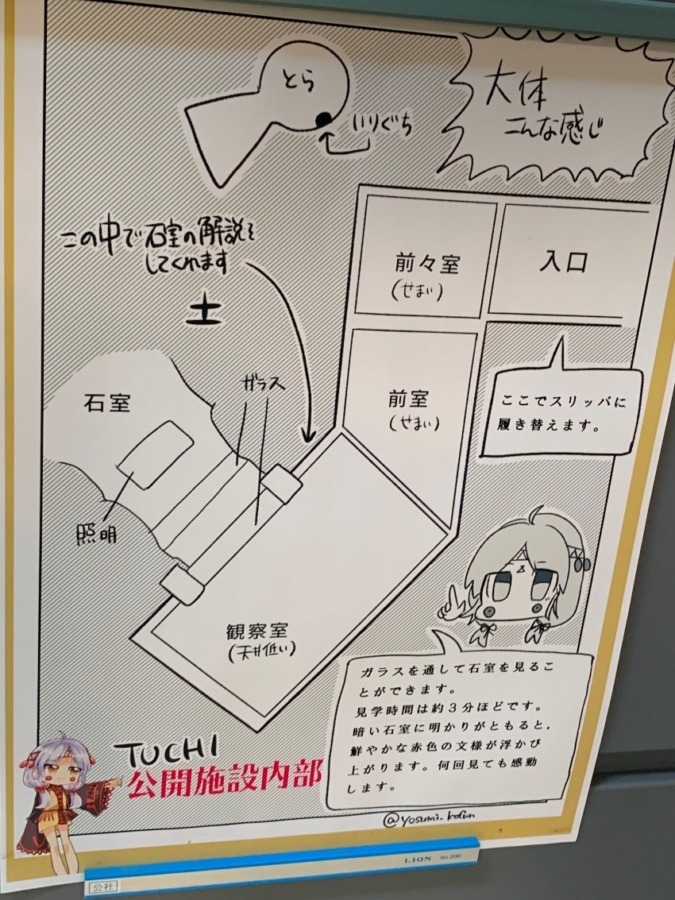 とら
いりぐち
大体
こんな感じ
この中で石室の解説を
してくれます
土
前々室
(せまい)
入口
前室
(せまい)
ここでスリッパに
履き替えます。
石室
ガラス
照明
観察室
(天井低い)
ガラスを通して石室を見るこ
とができます。
見学時間は約3分ほどです。
暗い石室に明かりがともると,
鮮やかな赤色の文様が浮かび
上がります。何回見ても感動
します。
TUCHI
公開施設内部
@yosumi_kofun
公社
LION No.200